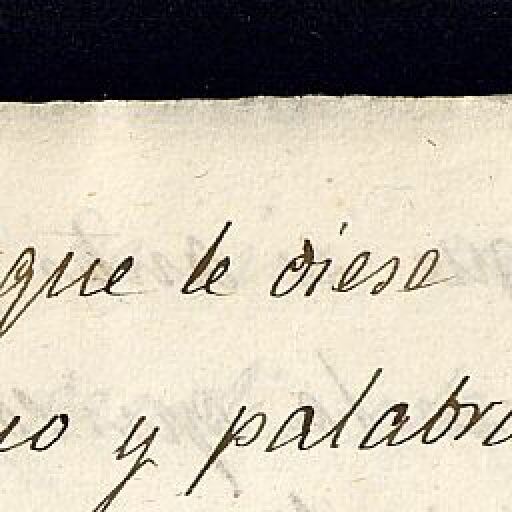 que le diese
uo y palabra